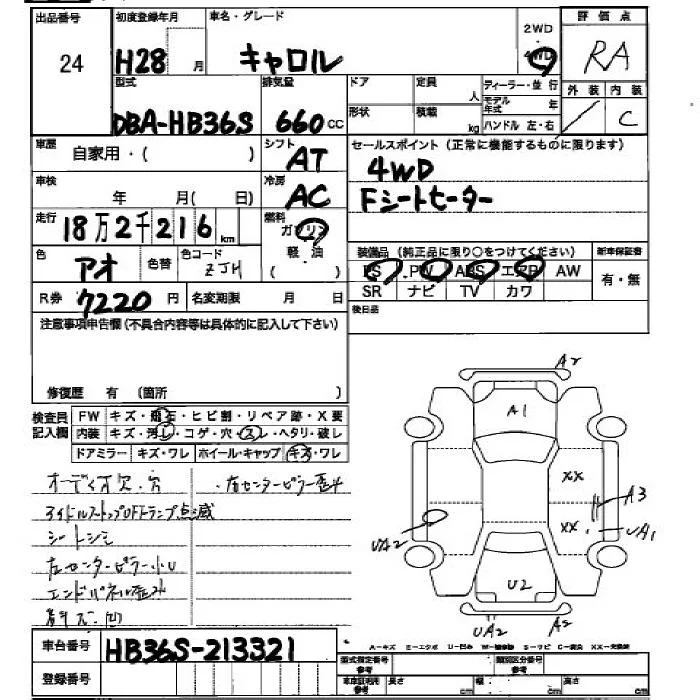 出品番号 初度登録年月 車名・グレード 2WD 評価点
24 H28 月 キャロル 4WD RA
型式 排気量 ドア 定員 人 ディーラー・並行 外装 内装
モデル年式 年
DBA-HB36S 660 CC 形状 積載 kg ハンドル 左・右 / C
車歴 自家用・( ) シフト AT セールスポイント (正常に機能するものに限ります)
4WD
車検 年 月( 日) 冷房 AC Fシートヒーター
走行 18万2千216 km 燃料 ガソリン
軽・油
装備品 (純正品に限り○をつけてください) 新車保証書
色 アオ 色替 色コード ZJH ( ) PS PW ABS エアB AW 有・無
R券 7220 円 名変期限 月 日 SR ナビ TV カワ
注意事項申告欄 (不具合内容等は具体的に記入して下さい) 後日品
修復歴 有 (箇所 )
検査員記入欄 FW キズ・ ・ヒビ割・リペア跡・X要
内装 キズ・汚レ・コゲ・穴・スレ・ヘタリ・破レ
ドアミラー キズ・ワレ ホイール・キャップ キズ・ワレ
A2
A1
XX
A3
XX
UA1
UA2
U2
UA2
A2
オーディオ欠.穴 ・左センターピラー歪み
アイドルストップOFFランプ点滅
シートシミ
左センターピラー小U
エンドパネル歪み
車台番号 HB36S-213321
A-キズ E-エクボ U-凹み S-サビ C-腐食 XX-交換済
登録番号 型式指定番号 参考 類別区分番号 参考
車車証明用 参考 長さ cm 幅 cm 高さ cm